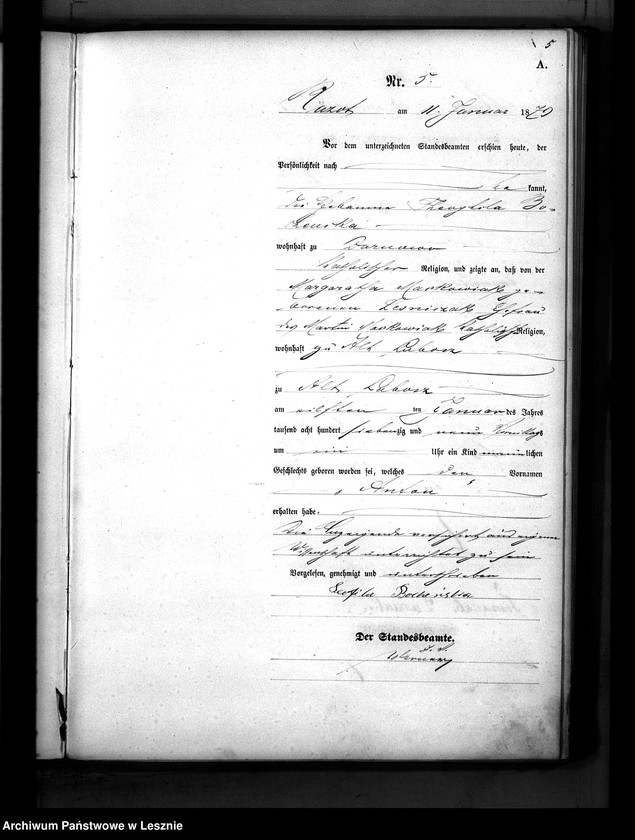 5
A.
Nr. 5.
am 11. Januar 1879
Vor dem unterzeichneten Standesbeamten erschien heute, der
Persönlichkeit nach
be kannt,
die Hebamme Theophila Bo-
wohnhaft zu
katholischer Religion, und zeigte an, daß von der
Margaretha Markowiak ge-
borenen Lesniczak Ehefrau
des Martin Markowiak katholischer Religion,
wohnhaft zu Alt
zu Alt
am eilften ten Januar des Jahres
tausend acht hundert siebenzig und neun Vormittags
um ein Uhr ein Kind männlichen
Geschlechts geboren worden sei, welches den Vornamen
Anton
erhalten habe.
Die Anzeigende versichert aus eigener
Wissenschaft unterrichtet zu sein
Vorgelesen, genehmigt und unterschrieben
Der Standesbeamte.
Archiwum Państwowe w Lesznie